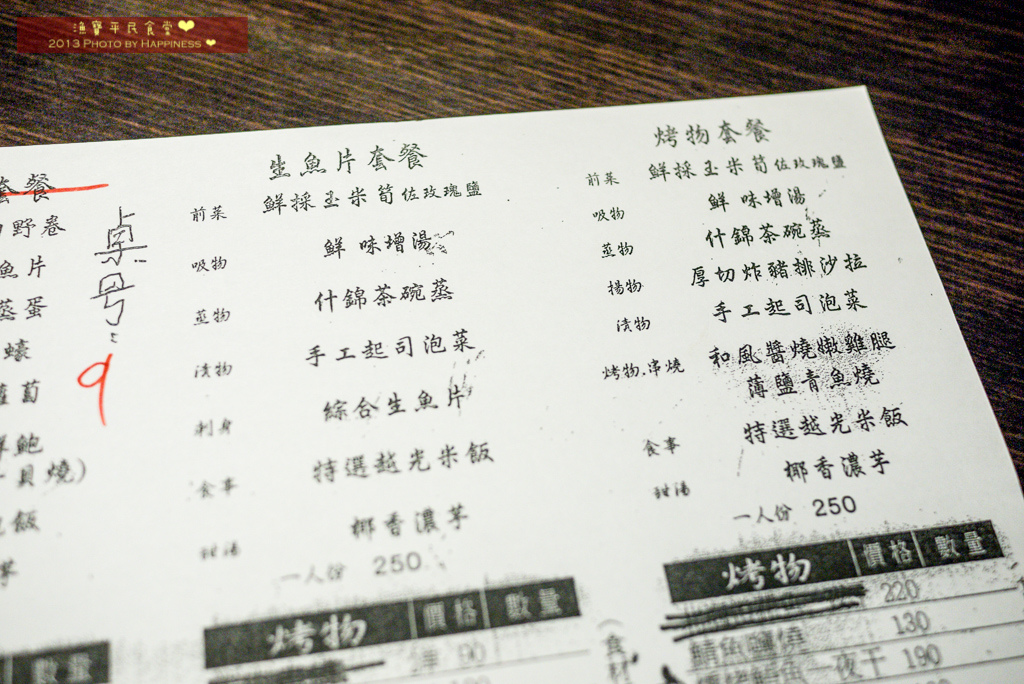 漁寶平民食堂
2013 PHOTO BY HAPPINESS
套餐
野卷
魚片
蒸蛋
蠔
蘿蔔
鮮鮑
貝燒)
飯
芋
桌号:
9
數量
生魚片套餐
前菜 鮮採玉米筍佐玫瑰鹽
吸物 鮮味增湯
蒸物 什錦茶碗蒸
漬物 手工起司泡菜
刺身 綜合生魚片
食事 特選越光米飯
甜湯 椰香濃芋
一人份 250
烤物 價格 數量
90
烤物套餐
前菜 鮮採玉米筍佐玫瑰鹽
吸物 鮮味增湯
蒸物 什錦茶碗蒸
揚物 厚切炸豬排沙拉
漬物 手工起司泡菜
烤物.串燒 和風醬燒嫩雞腿
薄鹽青魚燒
食事 特選越光米飯
甜湯 椰香濃芋
一人份 250
烤物 價格 數量
220
鯖魚鹽燒 130
一夜干 190
(食材